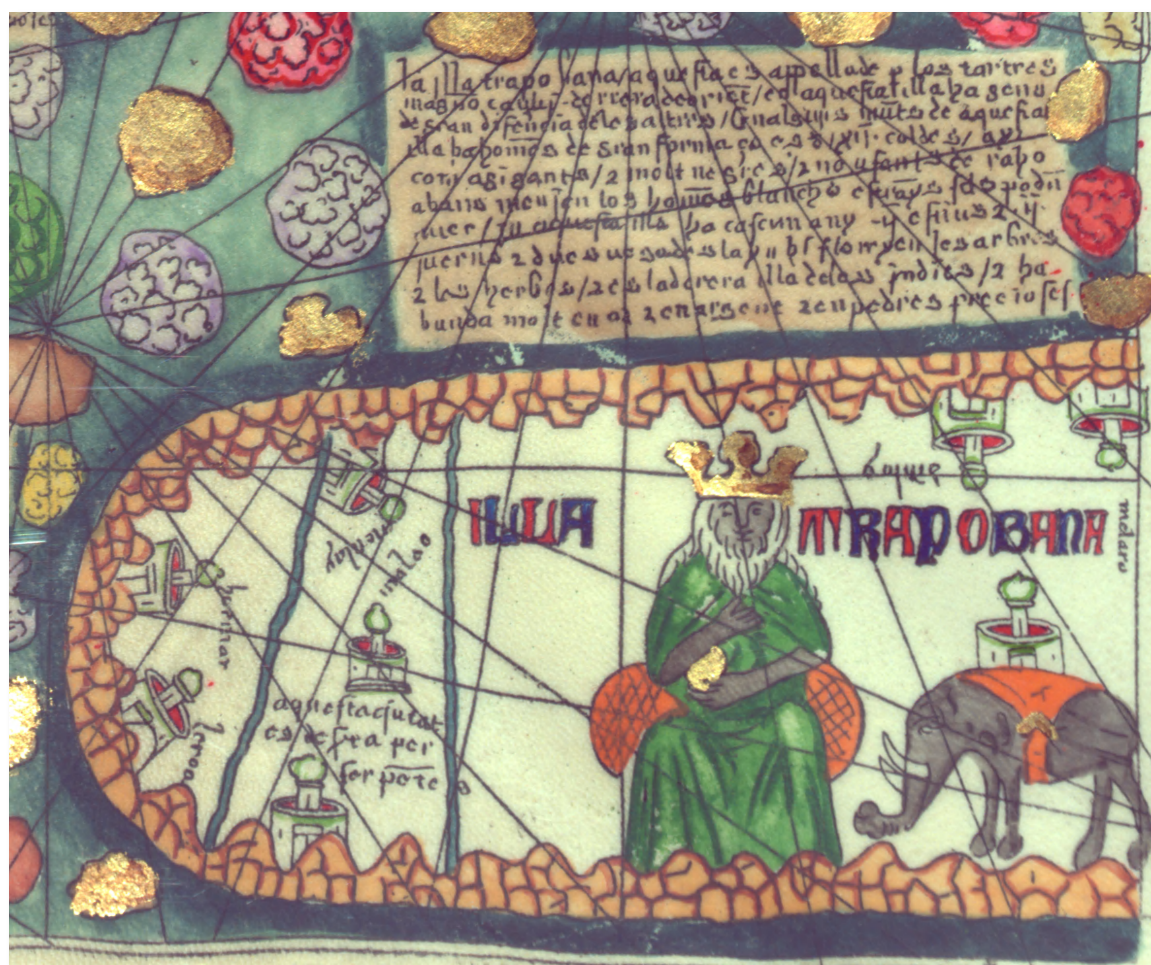 la illa trapobana / aquesta es appellade p los tartres
magno caulij derrera de orient / en aquesta illa ha gens
de gran diferencia de les altres / En alguns mūts de aquesta
illa ha homēs de gran forma ço es d xij coldes / axi
com a gigants / 2 molt negres / 2 no usants de raho
abans menjen los homēs blanchs estrāys sels podē
aver / En aquesta illa ha cascun any ij estius 2 ij
juerns 2 dues vegades lany hi florexen les arbres
2 les herbes / 2 es la derera illa de les jndies / 2 ha
bunda molt en or 2 en argent 2 en pedres precioses
ILLA TRAPOBANA
malao
hormar
aquesta ciutat
es desfta per
serpōts